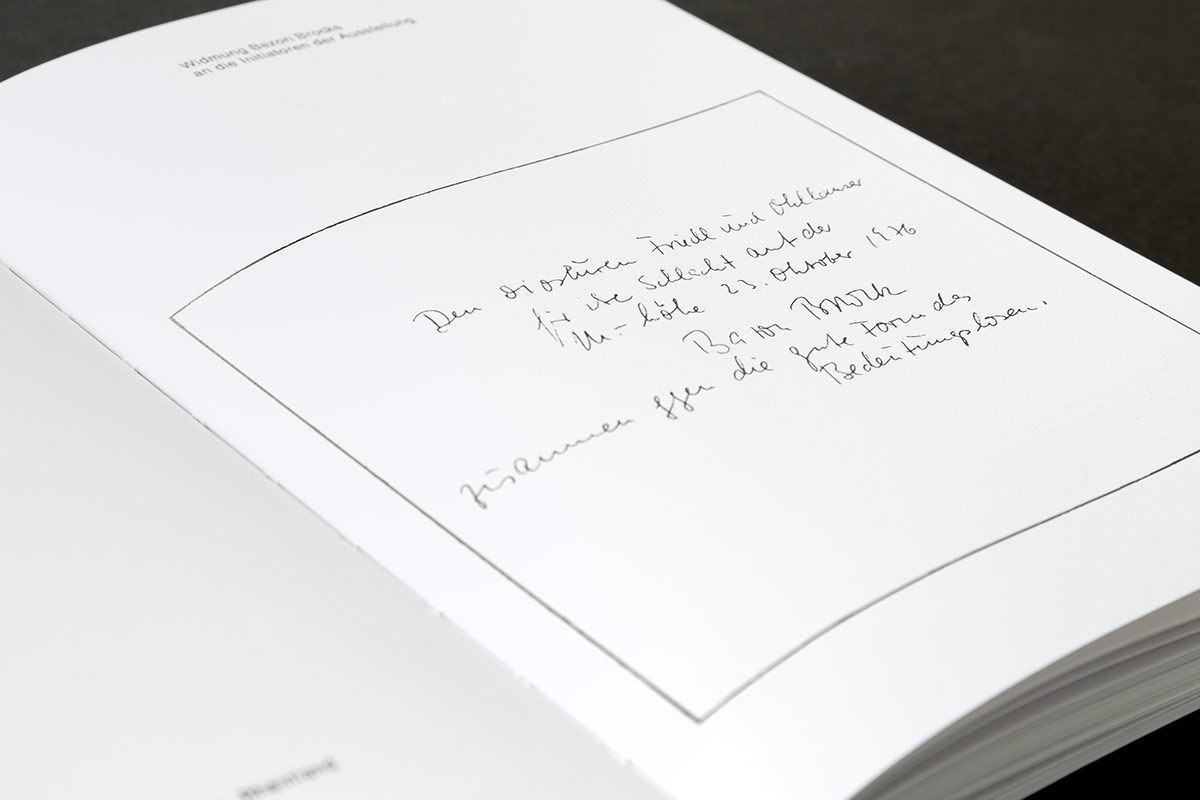 Widmung Bazon Brocks
an die Initiatoren der Ausstellung
Den Dioskuren Friedl und Ohlhauser
für ihre Schlacht auf der
M.-höhe 23. Oktober 1976
Bazon Brock
zusammen gegen die gute Form des
Bedeutungslosen.